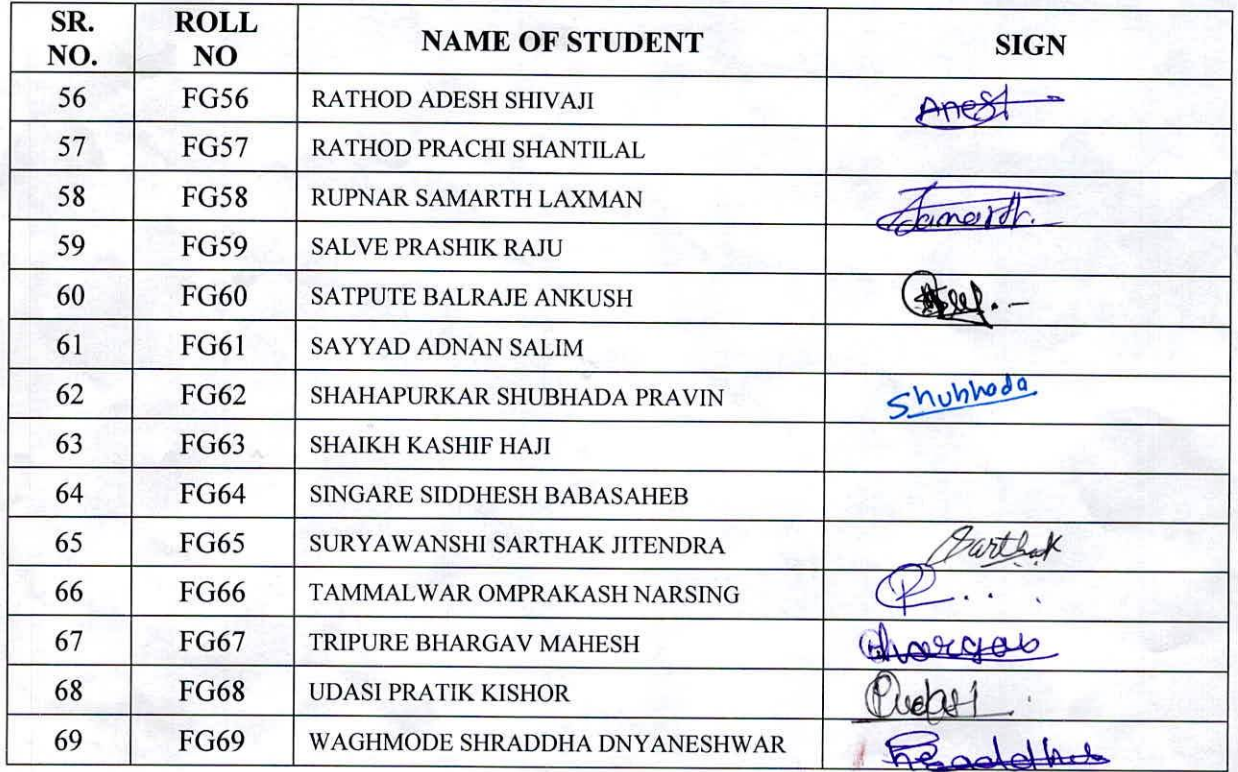 SR. NO. ROLL NO NAME OF STUDENT SIGN
56 FG56 RATHOD ADESH SHIVAJI
57 FG57 RATHOD PRACHI SHANTILAL
58 FG58 RUPNAR SAMARTH LAXMAN Samarth.
59 FG59 SALVE PRASHIK RAJU
60 FG60 SATPUTE BALRAJE ANKUSH
61 FG61 SAYYAD ADNAN SALIM
62 FG62 SHAHAPURKAR SHUBHADA PRAVIN Shubhada
63 FG63 SHAIKH KASHIF HAJI
64 FG64 SINGARE SIDDHESH BABASAHEB
65 FG65 SURYAWANSHI SARTHAK JITENDRA Sarthak
66 FG66 TAMMALWAR OMPRAKASH NARSING
67 FG67 TRIPURE BHARGAV MAHESH Bhargav
68 FG68 UDASI PRATIK KISHOR
69 FG69 WAGHMODE SHRADDHA DNYANESHWAR